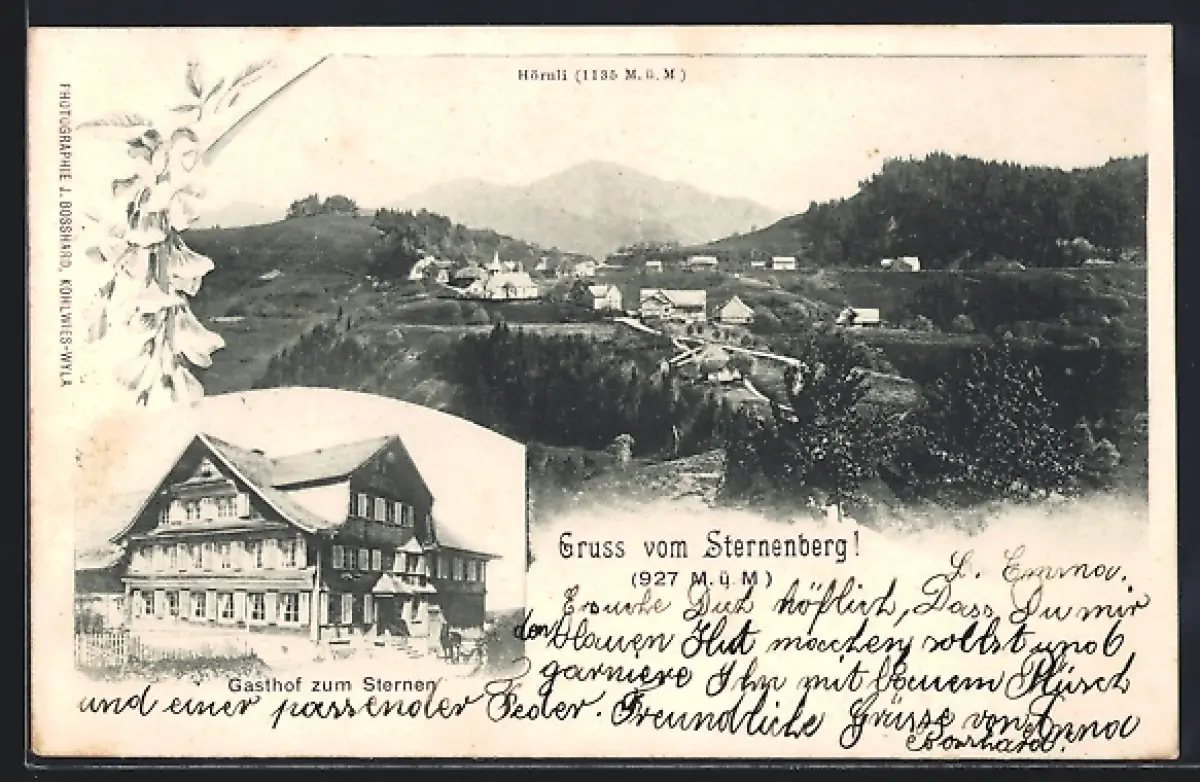 Hörnli (1135 M. ü. M)
PHOTOGRAPHIE J. BOSSHARD, KOHLWIES-WYLA
Gruss vom Sternenberg!
(927 M. ü. M)
Gasthof zum Sternen
L. Emma.
Ersuche Dich höflich, Dass Du mir
den blauen Hut machen sollst und
garniere Ihn mit blauem Plüsch
und einer passender Feder. Freundliche Grüsse von Anna
Bosshard.